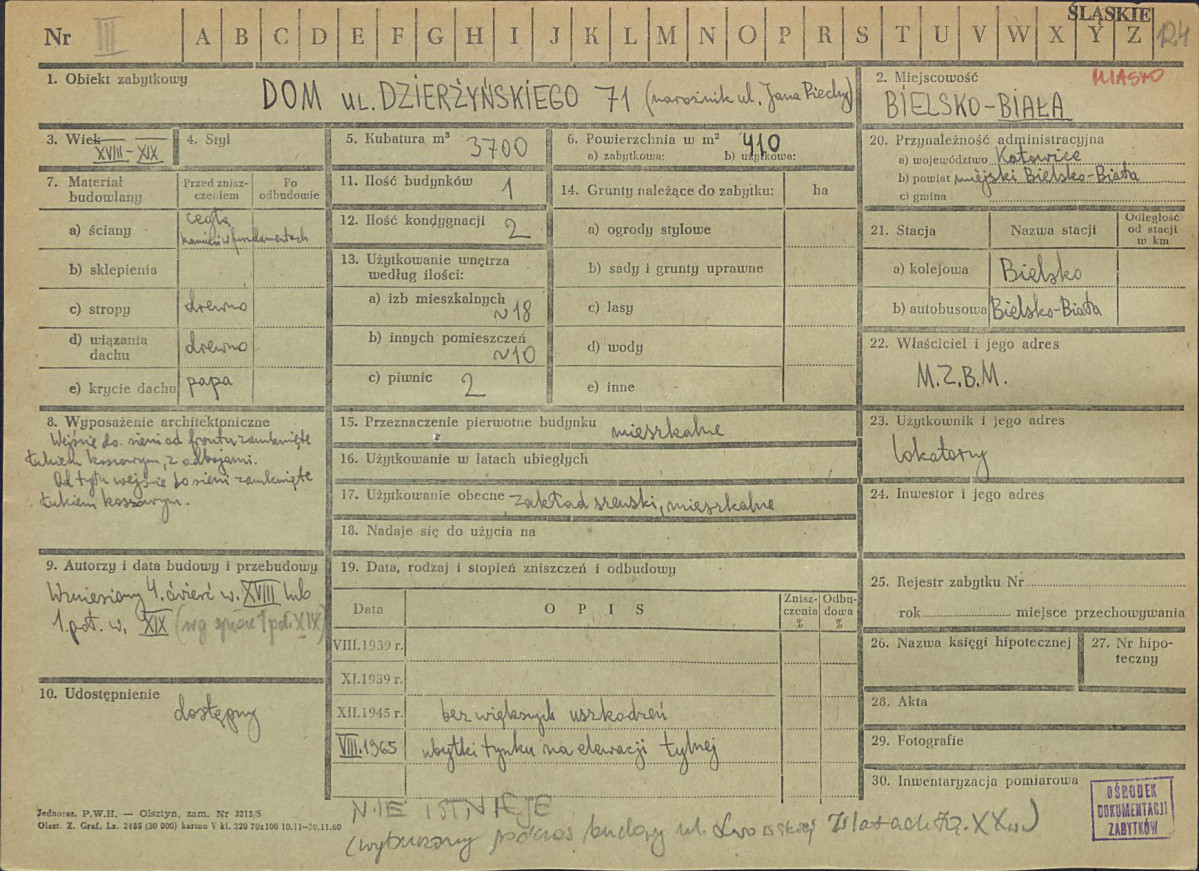 ŚLĄSKIE
Nr III A B C D E F G H I J K L M N O P R S T U V W X Y Z 124
1. Obiekt zabytkowy
DOM UL. DZIERŻYŃSKIEGO 71 (narożnik ul. Jana Piechy)
2. Miejscowość MIASTO
BIELSKO-BIAŁA
3. Wiek
XVIII - XIX
4. Styl
5. Kubatura m³ 3700
6. Powierzchnia w m² 410
a) zabytkowa: b) użytkowa:
20. Przynależność administracyjna
a) województwo Katowice
b) powiat miejski Bielsko-Biała
c) gmina
7. Materiał budowlany
Przed zniszczeniem
Po odbudowie
a) ściany cegła
kamień w fundamentach
b) sklepienia
c) stropy drewno
d) wiązania dachu drewno
e) krycie dachu papa
11. Ilość budynków 1
12. Ilość kondygnacji 2
13. Użytkowanie wnętrza
według ilości:
a) izb mieszkalnych
~18
b) innych pomieszczeń
~10
c) piwnic 2
14. Grunty należące do zabytku: ha
a) ogrody stylowe
b) sady i grunty uprawne
c) lasy
d) wody
e) inne
21. Stacja Nazwa stacji
Odległość
od stacji
w km
a) kolejowa Bielsko
b) autobusowa Bielsko-Biała
22. Właściciel i jego adres
M.Z.B.M.
8. Wyposażenie architektoniczne
Wejście do sieni od frontu zamknięte
łukiem koszowym, z odbojami.
Od tyłu wejście do sieni zamknięte
łukiem koszowym.
15. Przeznaczenie pierwotne budynku mieszkalne
16. Użytkowanie w latach ubiegłych
17. Użytkowanie obecne zakład szewski, mieszkalne
18. Nadaje się do użycia na
23. Użytkownik i jego adres
lokatorzy
24. Inwestor i jego adres
9. Autorzy i data budowy i przebudowy
Wzniesiony 4. ćwierć w. XVIII lub
1. poł. w. XIX (wg 1 poł. XIX)
10. Udostępnienie
dostępny
19. Data, rodzaj i stopień zniszczeń i odbudowy
Data O P I S
Znisz-
czenia
%
Odbu-
dowa
%
VIII.1939 r.
XI.1939 r.
XII.1945 r. bez większych uszkodzeń
VIII.1965 ubytki tynku na elewacji tylnej
25. Rejestr zabytku Nr
rok miejsce przechowywania
26. Nazwa księgi hipotecznej
27. Nr hipo-
teczny
28. Akta
29. Fotografie
30. Inwentaryzacja pomiarowa
OŚRODEK
DOKUMENTACJI
ZABYTKÓW
Jednoraz. P.W.H. — Olsztyn, zam. Nr 3215/S
Olszt. Z. Graf. Lz. 2485 (30 000) karton V kl. 220 70x100 10.11—30.11.60
NIE ISTNIEJE
(wyburzony podczas budowy ul. Lwowskiej w latach XX w.)